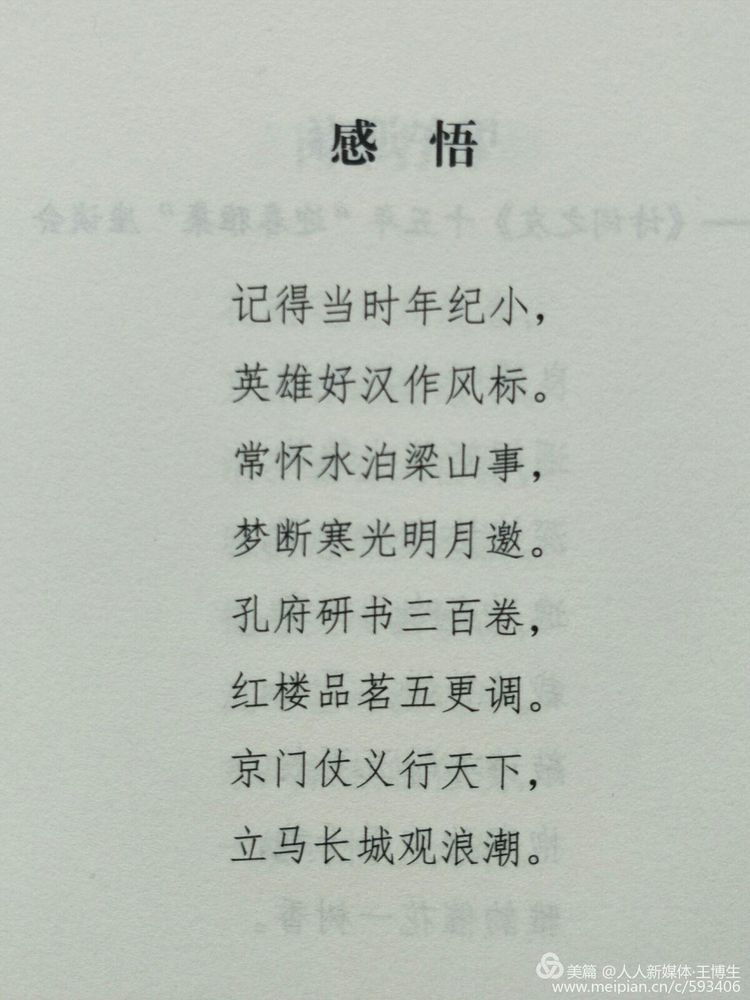 感 悟
——《诗词之友》十五年“迎春雅集”座谈会
记得当时年纪小，
英雄好汉作风标。
常怀水泊梁山事，
梦断寒光明月邀。
孔府研书三百卷，
红楼品茗五更调。
京门仗义行天下，
立马长城观浪潮。
雅韵催花一树香。
美篇 @人人新媒体·王博生
www.meipian.cn/c/593406